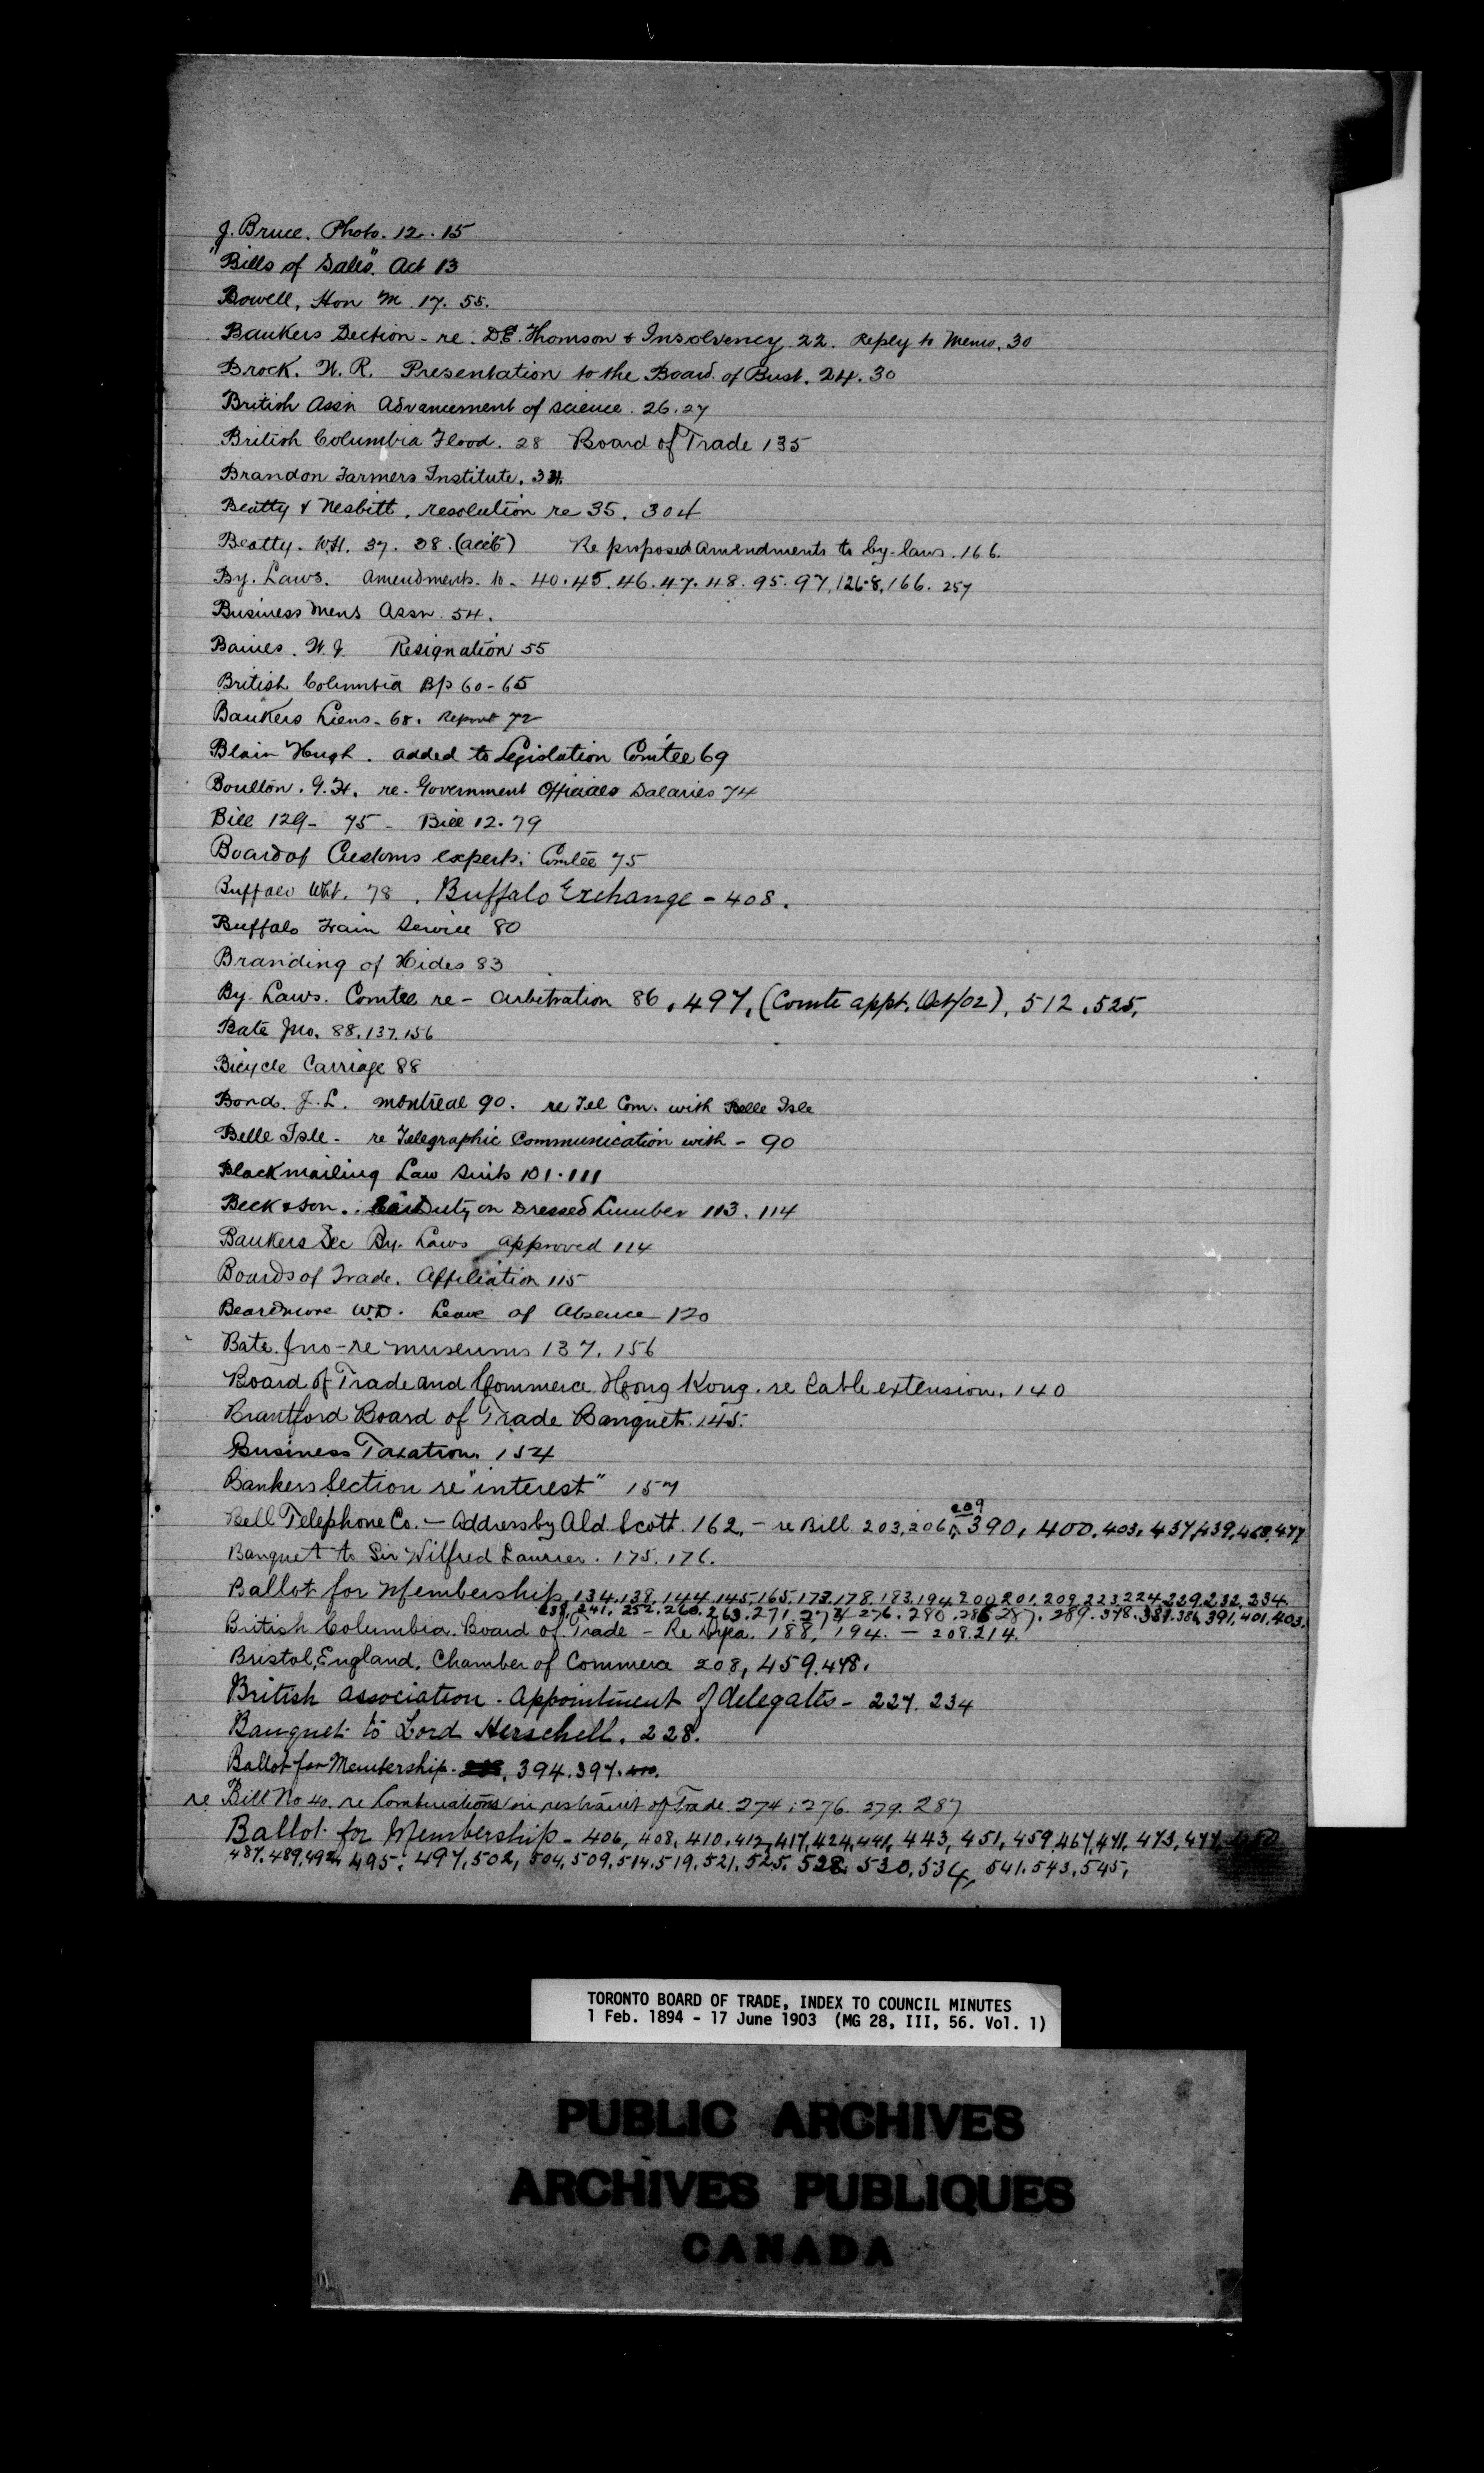 J. Bruce. Photo. 12. 15
"Bills of Sales". Act 13
Bowell, Hon M. 17. 55.
Bankers Section - re. D.E. Thomson & Insolvency 22. Reply to Memo. 30
Brock. W. R. Presentation to the Board of Bust. 24. 30
British Assn Advancement of Science. 26. 27
British Columbia Flood. 28 Board of Trade 135
Brandon Farmers Institute.
Beatty & Nesbitt. resolution re 35. 304
Beatty. W.H. 37. 38. (acct) Re proposed Amendments to by-laws. 166.
By. Laws. Amendments. to - 40. 45. 46. 47. 48. 95. 97, 126-8, 166. 257
Business Mens Assn. 54.
Baines. W. J. Resignation 55
British Columbia Bp 60-65
Bankers Liens - 68. Report 72
Blain Hugh. added to Legislation Comtee 69
Boulton. G.H. re. Government Officials Salaries 74
Bill 129 - 75 - Bill 12. 79
Board of Customs experts: Comtee 75
Buffalo Wht. 78. Buffalo Exchange - 408.
Buffalo Train Service 80
Branding of Hides 83
By. Laws. Comtee re - Arbitration 86, 497, (Comte appt. Oct/02), 512, 525,
Bate Jno. 88. 137. 156
Bicycle Carriage 88
Bond. J. L. Montreal 90. re Tel Com. with Belle Isle
Belle Isle - re Telegraphic Communication with - 90
Blackmailing Law Suits 101. 111
Beck & Son. Duty on Dressed Lumber 113. 114
Bankers Sec By. Laws approved 114
Boards of Trade. Affiliation 115
Beardmore W.D. Leave of Absence 120
Bate. Jno - re museums 137. 156
Board of Trade and Commerce Hong Kong. re Cable extension. 140
Brantford Board of Trade Banquet. 145.
Business Taxation. 154
Bankers Section re "interest" 157
Bell Telephone Co. - Address by Ald. Scott. 162. - re Bill 203, 206, 209 390, 400, 403, 437, 439, 468, 477
Banquet to Sir Wilfred Laurier. 175. 176.
Ballot for Membership 134. 138. 144. 145. 165. 173. 178. 183. 194. 200 201. 209. 223 224. 229. 232. 234.
239. 241. 252. 260. 263. 271. 276. 280. 287. 289. 378. 386. 391. 401. 403.
British Columbia. Board of Trade - Re Dyea. 188, 194. - 208. 214.
Bristol, England. Chamber of Commerce 208, 459. 478.
British Association. Appointment of delegates - 227. 234
Banquet to Lord Herschell. 228.
Ballot for Membership. 394. 397.
re Bill No 40. re Combinations in restraint of Trade. 274; 276. 279. 287
Ballot for Membership - 406, 408, 410, 412, 417, 424, 441, 443, 451, 459, 467, 471, 473, 477,
487. 489, 492, 495, 497, 502, 504, 509, 514, 519, 521, 525, 528, 530, 534, 541. 543, 545,
TORONTO BOARD OF TRADE, INDEX TO COUNCIL MINUTES
1 Feb. 1894 - 17 June 1903 (MG 28, III, 56. Vol. 1)
PUBLIC ARCHIVES
ARCHIVES PUBLIQUES
CANADA